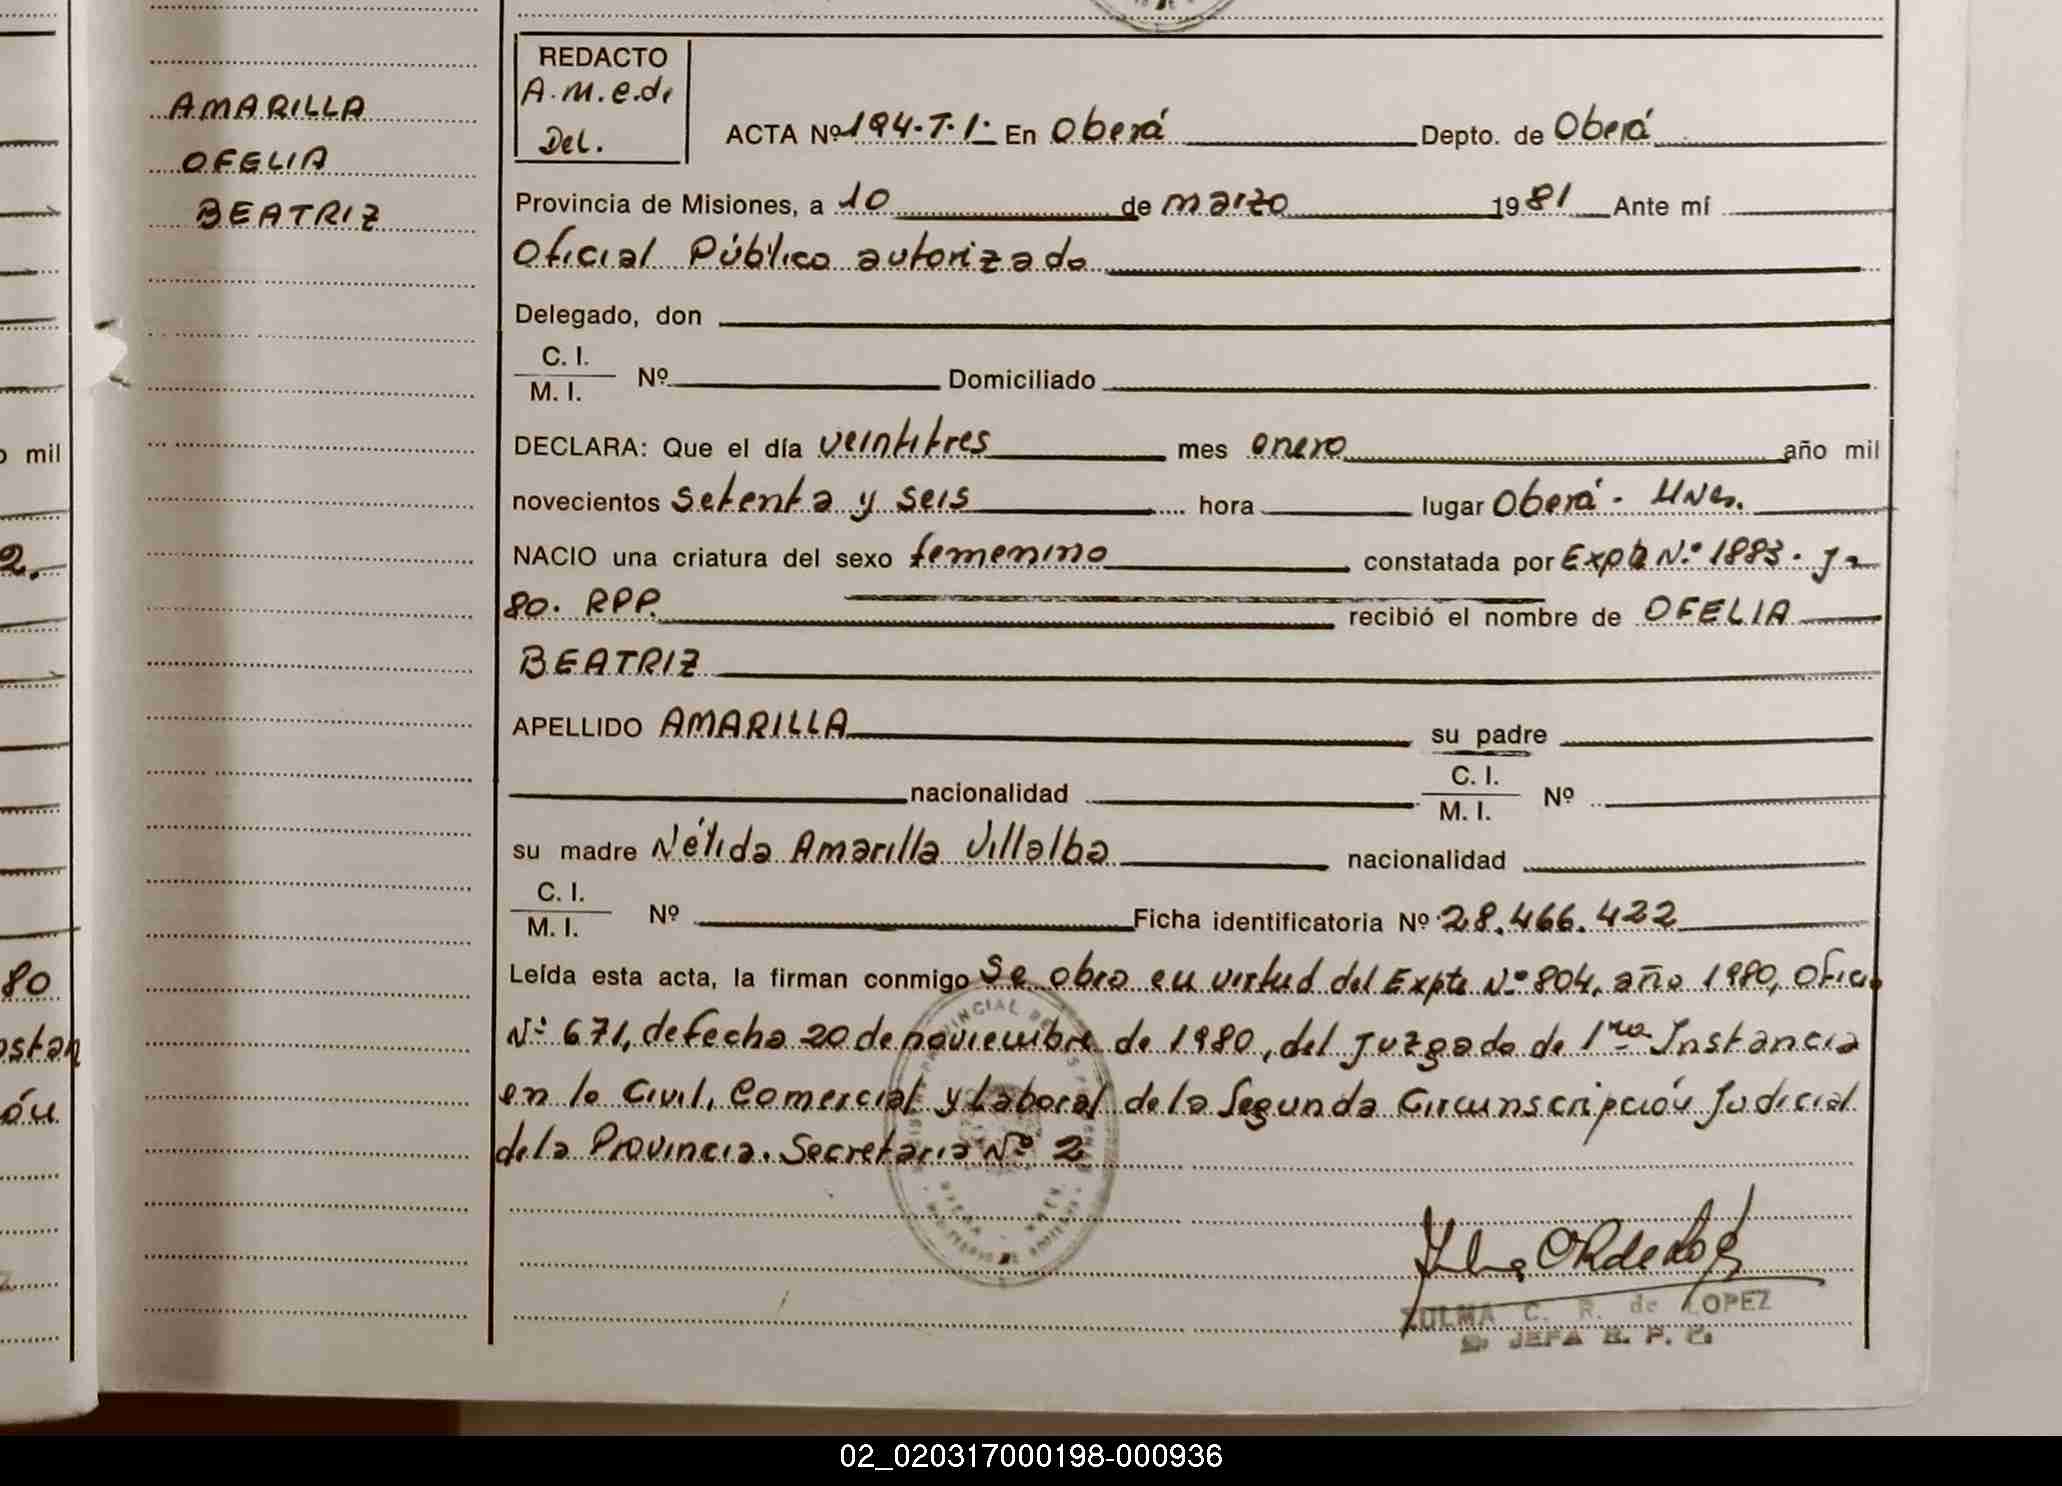 AMARILLA
OFELIA
BEATRIZ
REDACTO
A.M.e.de
Del.
ACTA Nº 194.T.I. En Oberá Depto. de Oberá
Provincia de Misiones, a 10 de marzo 1981 Ante mí
Oficial Público autorizado
Delegado, don
C. I.
M. I. Nº Domiciliado
DECLARA: Que el día veintitres mes enero año mil
novecientos setenta y seis hora lugar Oberá - Mnes.
NACIO una criatura del sexo femenino constatada por Expte Nº 1883-J-
80. RPP. recibió el nombre de OFELIA
BEATRIZ
APELLIDO AMARILLA su padre
nacionalidad C. I.
M. I. Nº
su madre Nélida Amarilla Villalba nacionalidad
C. I.
M. I. Nº Ficha identificatoria Nº 28.466.422
Leída esta acta, la firman conmigo Se obra en virtud del Expte Nº 804, año 1980, Oficio
Nº 671, de fecha 20 de noviembre de 1980, del Juzgado de 1ra Instancia
en lo Civil, Comercial y Laboral de la Segunda Circunscripción Judicial
de la Provincia. Secretaria Nº 2
ZULMA C. R. de LOPEZ
JEFA R. P. P.
o mil
2.
80
ostan
ón
02_020317000198-000936